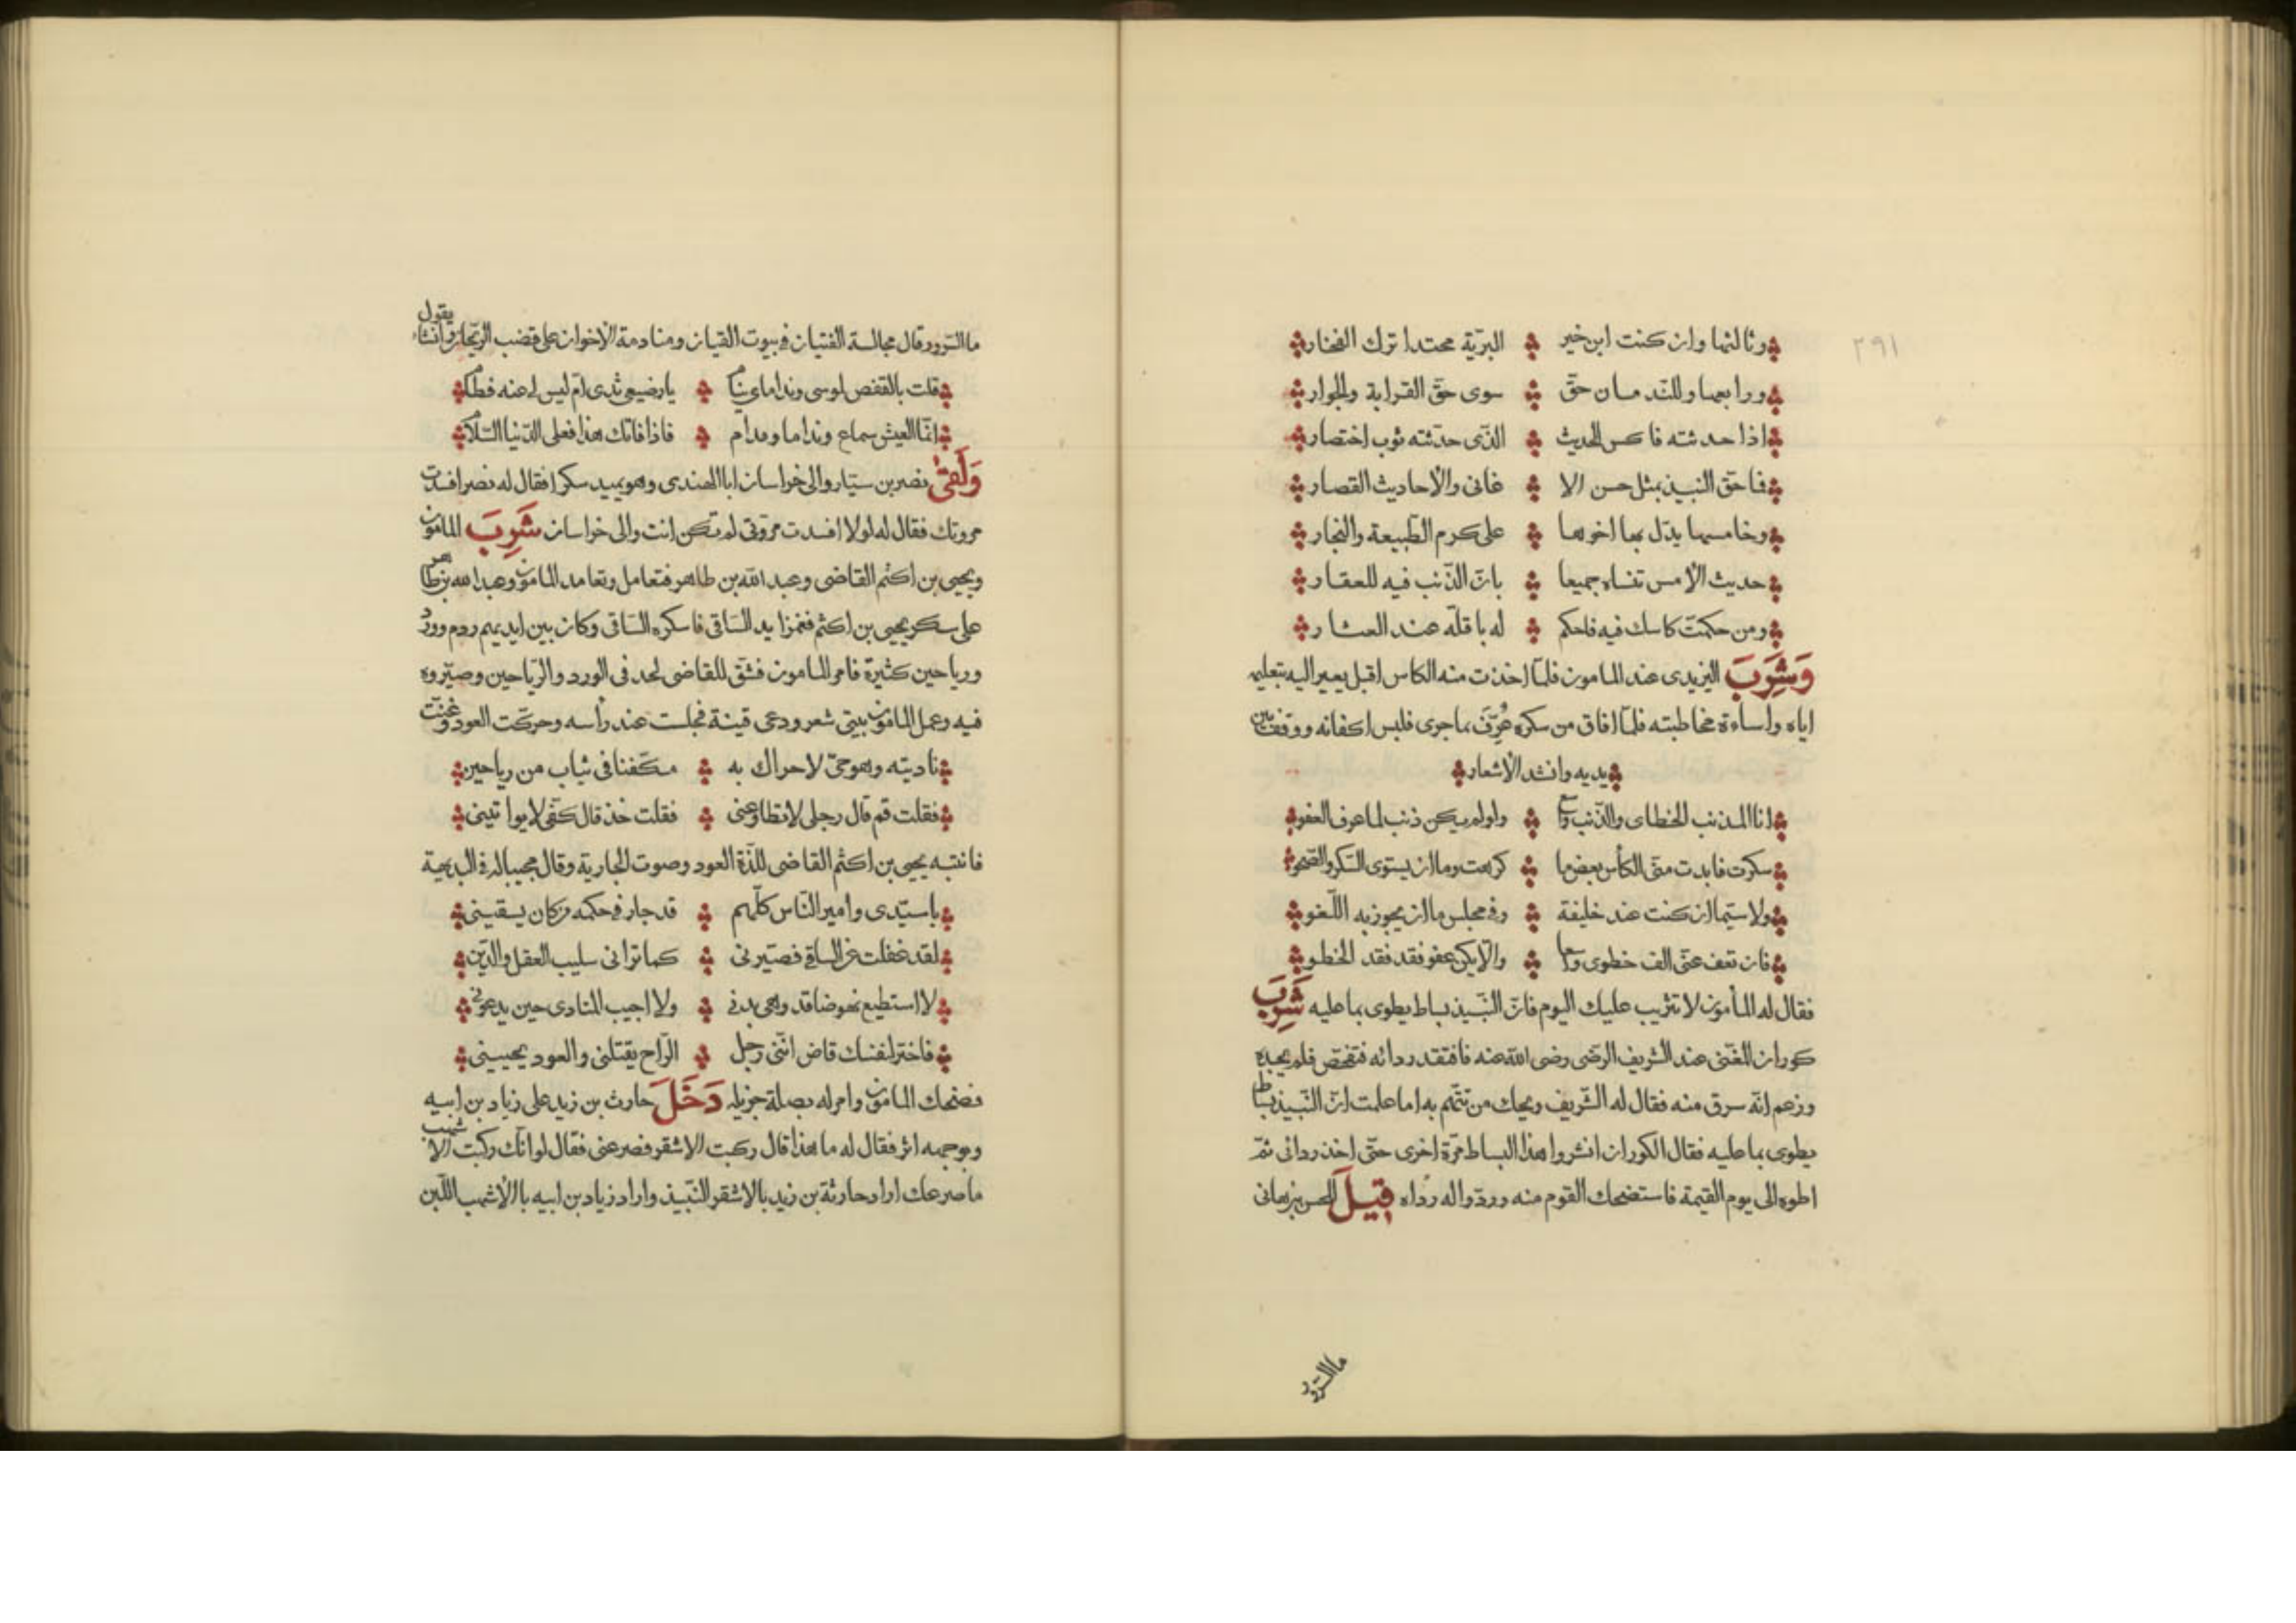 ٢٩١
وثالثها وان كنت ابن خير البريّة محتدا ترك الفخار
ورابعها وللندمان حق سوى حق القرابة والجوار
اذا حدثته فاكس الحديث الذى حدّثته ثوب اختصار
فما حق النبيذ بمثل حسن الا غانى والاحاديث القصار
وخامسها يدل بها اخوها على كرم الطبيعة والنجار
حديث الامس تنساه جميعا بان الذنب فيه للعقار
ومن حكمت كاسك فيه فاحكم له باقلة عند العثار
وَشَرِبَ اليزيدى عند المامون فلمّا اخذت منه الكاس اقبل يعير اليه بتعليمه
اياه واساءة مخاطبته فلمّا افاق من سكره عُرِّفَ بما جرى فلبس اكفانه ووقف بين
يديه وانشد الاشعار
انا المذنب الخطاى والذنب واسع ولو لم يكن ذنب لما عرف العفو
سكرت فابدت منّى الكأس بعض ما كرهت وما ان يستوى السكر والصحو
ولا سيّما ان كنت عند خليفة وفى مجلس ما ان يجوز به اللّغو
فان تعف عنّى الف خطوى واسعا والّا يكن عفو فقد فقد الخطو
فقال له المأمون لا تثريب عليك اليوم فانّ النّبيذ بساط يطوى بما عليه شَرِبَ
كوران المغنى عند الشريف الرضى رضى الله عنه فافتقد ردائه فتفحّص فلم يجده
وزعم انّه سرق منه فقال له الشّريف ويحك من تتّهم به اما علمت انّ النّبيذ بساط
يطوى بما عليه فقال الكوران انشروا هذا البساط مرّة اخرى حتّى اخذ ردائى ثمّ
اطوه الى يوم القيمة فاستضحك القوم منه وردّوا له رداه قِيلَ للحسن بن هانى
ما السّرور
ما السّرور قال مجالسة الفتيان فى بيوت القيان ومنادمة الاخوان على قضب الرّيحان وانشاء يقول
قلت بالقفص لموسى ونداماى نيام يا رضيعى ثدى ام ليس لى عنه فطام
انّما العيش سماع وندامى ومدام فاذا فاتك هذا فعلى الدّنيا السّلام
وَلَقَى نصر بن سيّار والى خراسان ابا الهندى وهو يميد سكرا فقال له نصر افسدت
مروتك فقال له لولا افسدت مروّتى لم تكن انت والى خراسان شَرِبَ المامون
ويحيى بن اكثم القاضى وعبد الله بن طاهر فتعامل وتعامد المامون وعبد الله بن طاهر
على سكر يحيى بن اكثم فغمزا يد السّاقى فاسكره السّاقى وكان بين ايديهم ردم وورد
ورياحين كثيرة فامر المامون فشقّ للقاضى لحد فى الورد والرّياحين وصيّروه
فيه وعمل المامون بيتى شعر ودعى قينة فجلست عند رأسه وحركت العود وغنّت
ناديته وهو حىّ لا حراك به مكفنا فى ثياب من رياحين
فقلت قم قال رجلى لا تطاوعنى فقلت خذ قال كفّى لا يواتينى
فانتبه يحيى بن اكثم القاضى للذّة العود وصوت الجارية وقال مجيبا له فى البديهة
يا سيّدى وامير النّاس كلّهم قد جار فى حكمه من كان يسقينى
لقد غفلت عن الساقى فصيّرنى كما ترانى سليب العقل والدّين
لا استطيع نهوضا قد وهى بدنى ولا اجيب المنادى حين يدعونى
فاختر لنفسك قاض انّنى رجل الرّاح يقتلنى والعود يحيينى
فضحك المامون وامر له بصلة جزيله دَخَلَ حارث بن زيد على زياد بن ابيه
وبوجهه اثر فقال له ما هذا قال ركبت الاشقر فصرعنى فقال لو انّك ركبت الاشهب
ما صرعك اراد حارثة بن زيد بالاشقر النّبيذ واراد زياد بن ابيه بالاشهب اللّبن